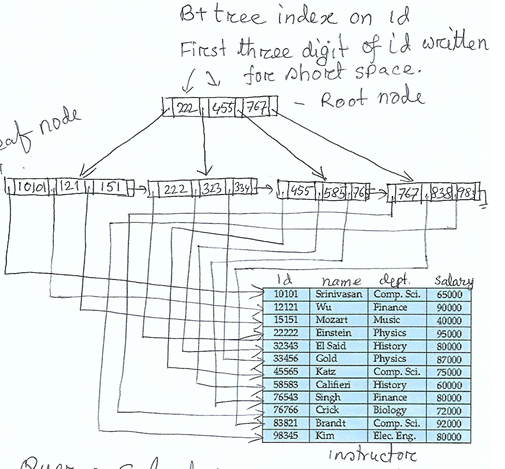 B+ tree index on id
First three digit of id written
for short space.
222 455 767 - Root node
leaf node
10101 121 151 222 323 334 455 585 765 767 838 983
id name dept. salary
10101 Srinivasan Comp. Sci. 65000
12121 Wu Finance 90000
15151 Mozart Music 40000
22222 Einstein Physics 95000
32343 El Said History 80000
33456 Gold Physics 87000
45565 Katz Comp. Sci. 75000
58583 Califieri History 60000
76543 Singh Finance 80000
76766 Crick Biology 72000
83821 Brandt Comp. Sci. 92000
98345 Kim Elec. Eng. 80000
instructor